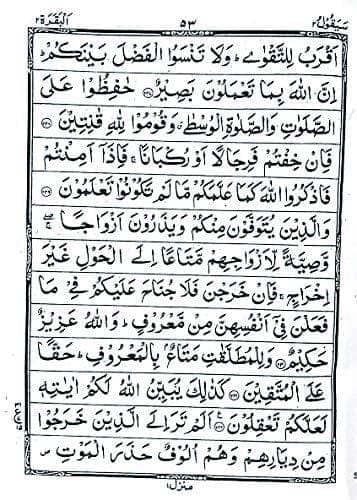 سيقول ٢ ٥٣ البقرة ٢
اَقْرَبُ لِلتَّقْوٰى ؕ وَلَا تَنْسَوُا الْفَضْلَ بَيْنَكُمْ ؕ
اِنَّ اللّٰهَ بِمَا تَعْمَلُوْنَ بَصِيْرٌ ﴿۲۳۷﴾ حٰفِظُوْا عَلَى
الصَّلَوٰتِ وَالصَّلٰوةِ الْوُسْطٰى ۗ وَقُوْمُوْا لِلّٰهِ قٰنِتِيْنَ ﴿۲۳۸﴾
فَاِنْ خِفْتُمْ فَرِجَالًا اَوْ رُكْبَانًا ۚ فَاِذَاۤ اَمِنْتُمْ
فَاذْكُرُوا اللّٰهَ كَمَا عَلَّمَكُمْ مَّا لَمْ تَكُوْنُوْا تَعْلَمُوْنَ ﴿۲۳۹﴾
وَالَّذِيْنَ يُتَوَفَّوْنَ مِنْكُمْ وَيَذَرُوْنَ اَزْوَاجًا ۖۚ
وَّصِيَّةً لِّاَزْوَاجِهِمْ مَّتَاعًا اِلَى الْحَوْلِ غَيْرَ
اِخْرَاجٍ ۚ فَاِنْ خَرَجْنَ فَلَا جُنَاحَ عَلَيْكُمْ فِيْ مَا
فَعَلْنَ فِيْۤ اَنْفُسِهِنَّ مِنْ مَّعْرُوْفٍ ؕ وَاللّٰهُ عَزِيْزٌ
حَكِيْمٌ ﴿۲۴۰﴾ وَلِلْمُطَلَّقٰتِ مَتَاعٌۢ بِالْمَعْرُوْفِ ؕ حَقًّا
عَلَى الْمُتَّقِيْنَ ﴿۲۴۱﴾ كَذٰلِكَ يُبَيِّنُ اللّٰهُ لَكُمْ اٰيٰتِهٖ
لَعَلَّكُمْ تَعْقِلُوْنَ ﴿۲۴۲﴾ اَلَمْ تَرَ اِلَى الَّذِيْنَ خَرَجُوْا
مِنْ دِيَارِهِمْ وَهُمْ اُلُوْفٌ حَذَرَ الْمَوْتِ ص
منزل ١